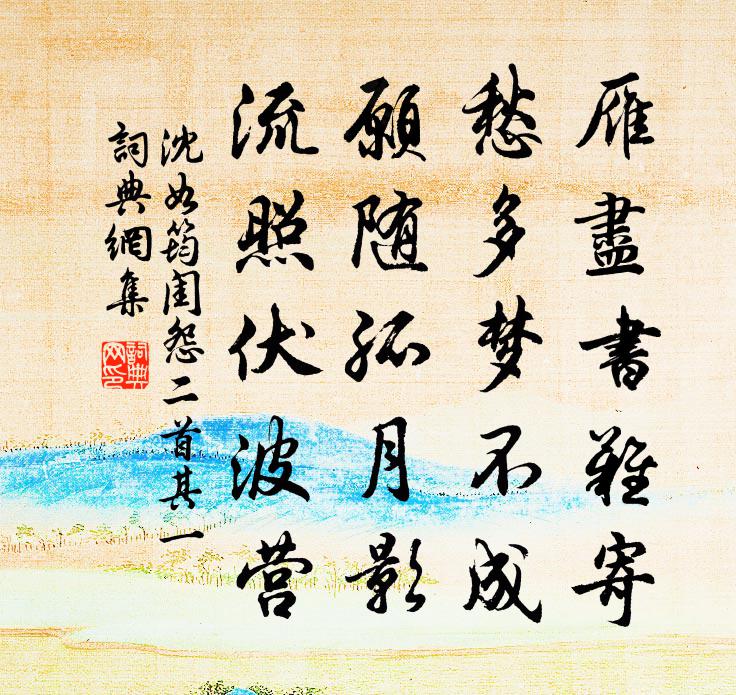 雁盡書難寄
愁多梦不成
願随孤月影
流照伏波营
沈如筠閨怨二首其一
詞典網集
詞典網印